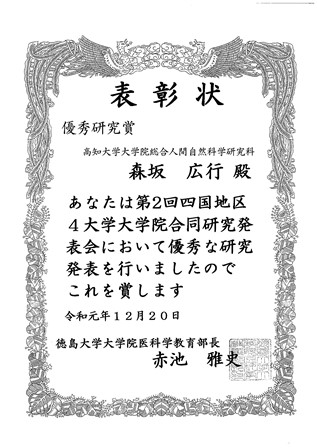 表彰状
優秀研究賞
高知大学大学院総合人間自然科学研究科
森坂 広行 殿
あなたは第2回四国地区
４大学大学院合同研究発
表会において優秀な研究
発表を行いましたので
これを賞します
令和元年１２月２０日
徳島大学大学院医科学教育部長
赤池 雅史